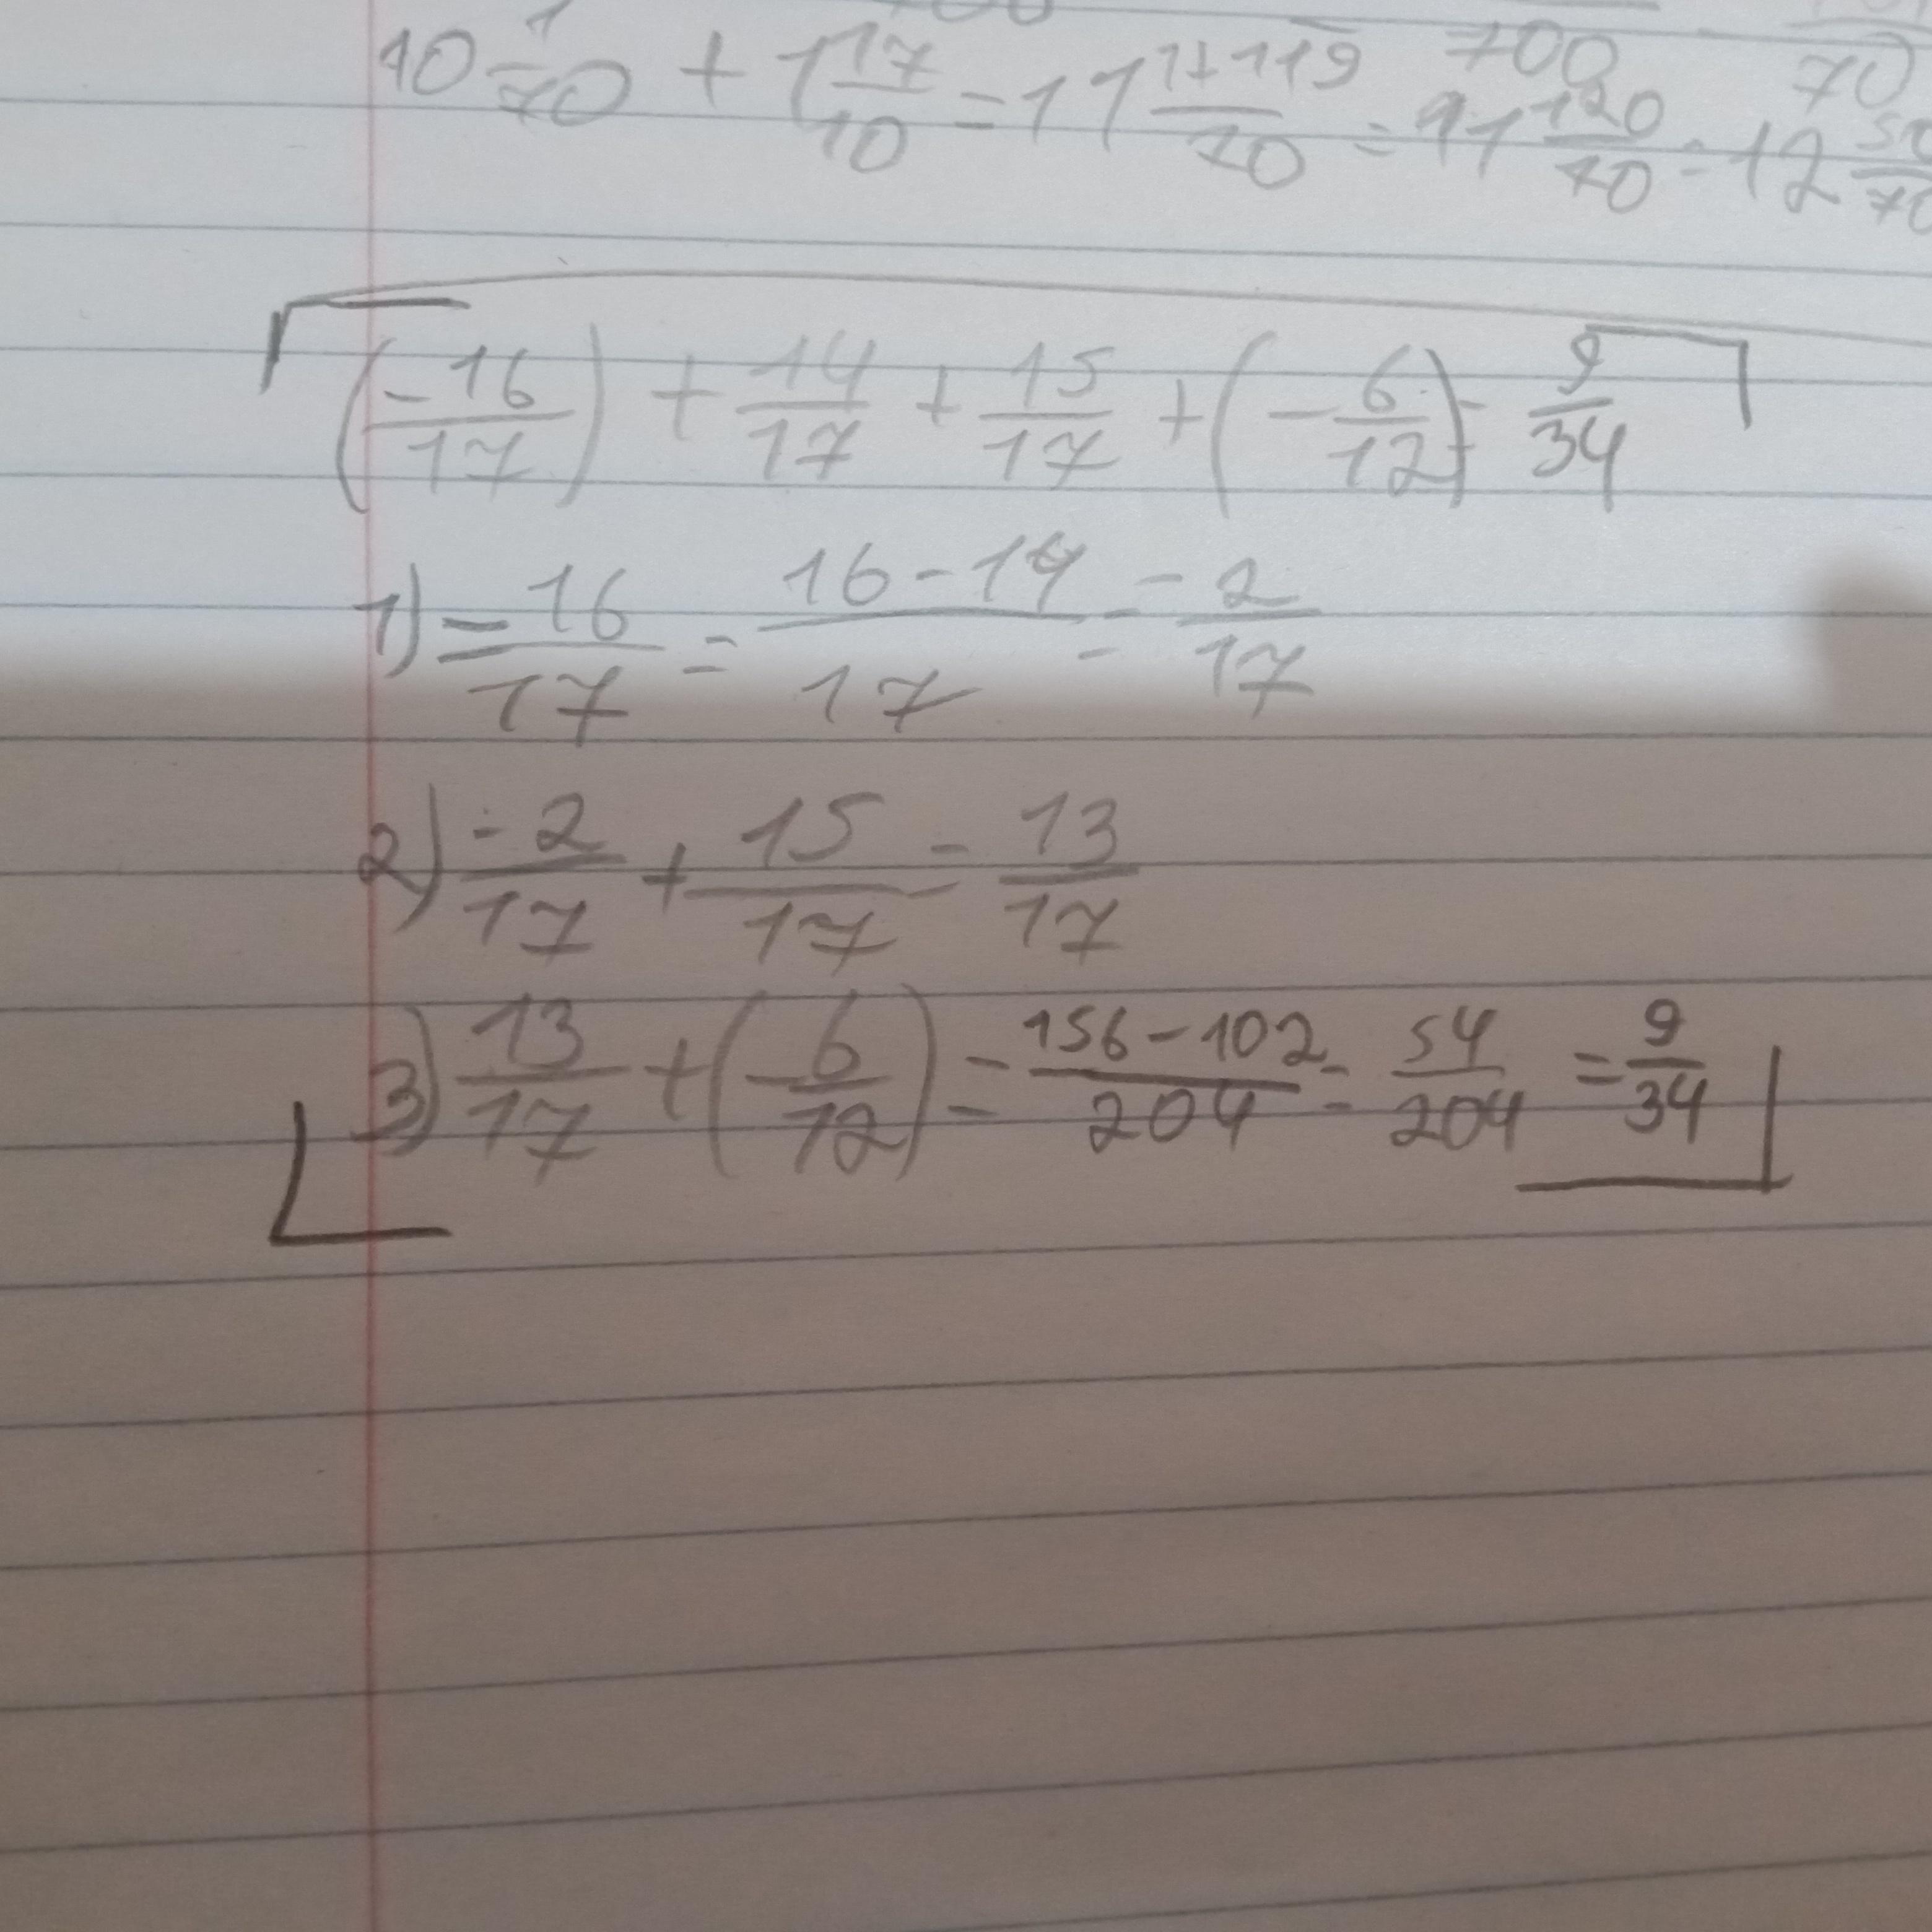 10 1/70 + 1 17/10 = 11 (1+119)/70 = 11 120/70 = 12
700
70
(-16/17) + 14/17 + 15/17 + (-6/12) = 9/34
1) -16/17 = (16-14)/17 = -2/17
2) -2/17 + 15/17 = 13/17
3) 13/17 + (-6/12) = (156-102)/204 = 54/204 = 9/34